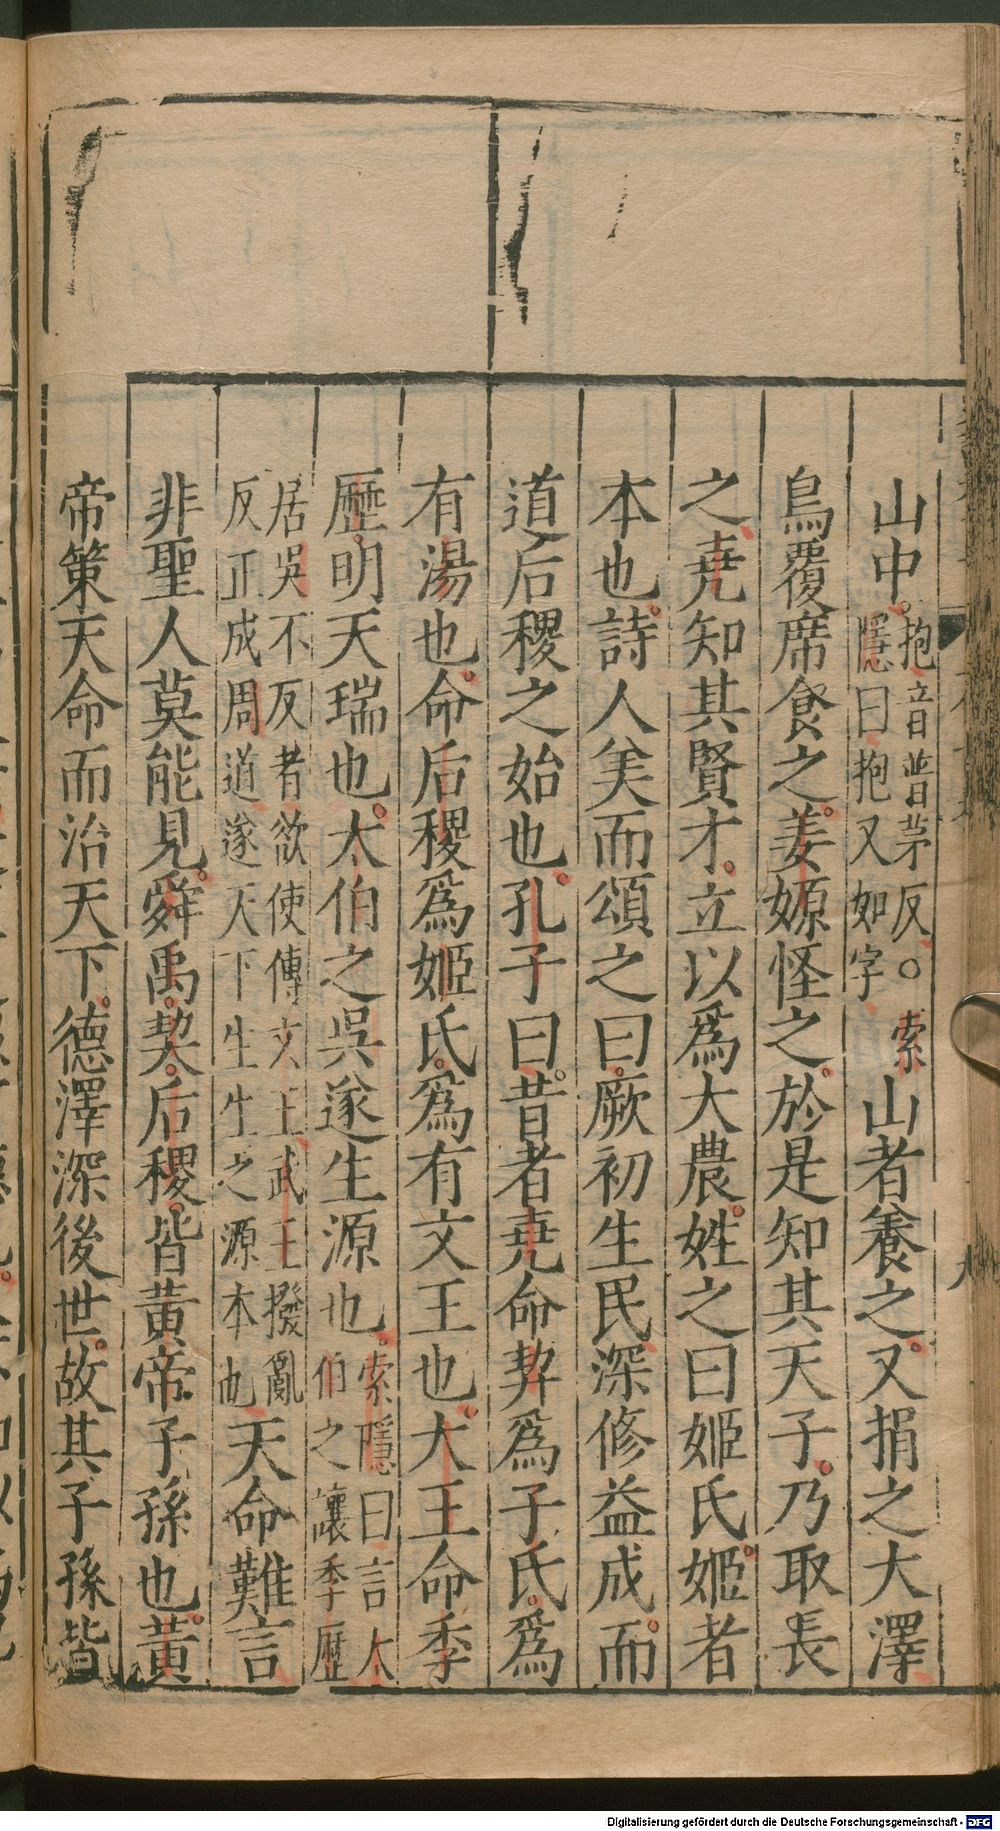 山中。抱音普茅反。○索隱曰抱又如字山者養之。又捐之大澤
鳥覆席食之。姜嫄怪之。於是知其天子。乃取長
之。堯知其賢才。立以為大農。姓之曰姬氏。姬者
本也。詩人美而頌之曰。厥初生民深修益成。而
道后稷之始也。孔子曰。昔者堯命契為子氏。為
有湯也。命后稷為姬氏。為有文王也。大王命季
歷。明天瑞也。太伯之吳遂生源也。索隱曰言太伯之讓季歷
居吳不反者欲使傳文王武王撥亂反正成周道遂天下生生之源本也天命難言
非聖人莫能見。舜禹。契。后稷。皆黃帝子孫也。黃
帝策天命而治天下。德澤深後世。故其子孫皆
Digitalisierung gefördert durch die Deutsche Forschungsgemeinschaft - DFG